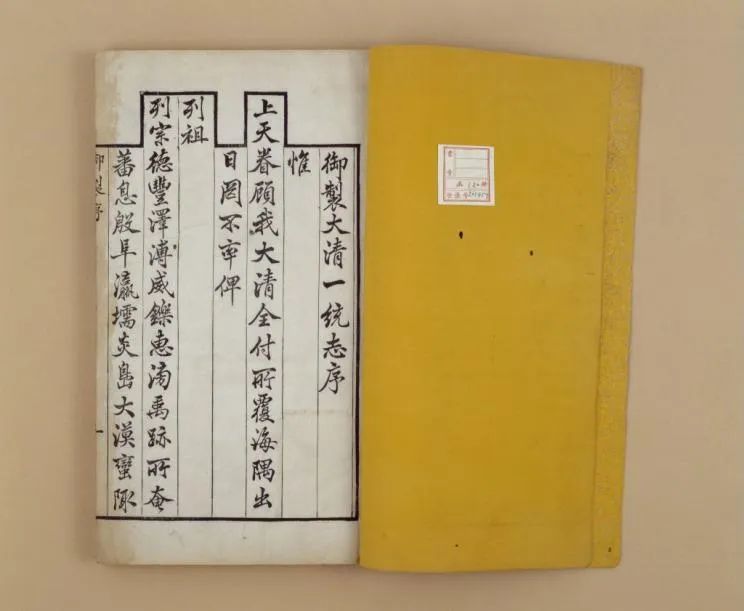 御製大清一統志序
惟
上天眷顧我大清全付所覆海隅出
日罔不率俾
列祖
列宗德豐澤溥威鑠惠滂禹跡所奄
蕃息殷阜瀛壖炎島大漠蠻陬
御製序
一